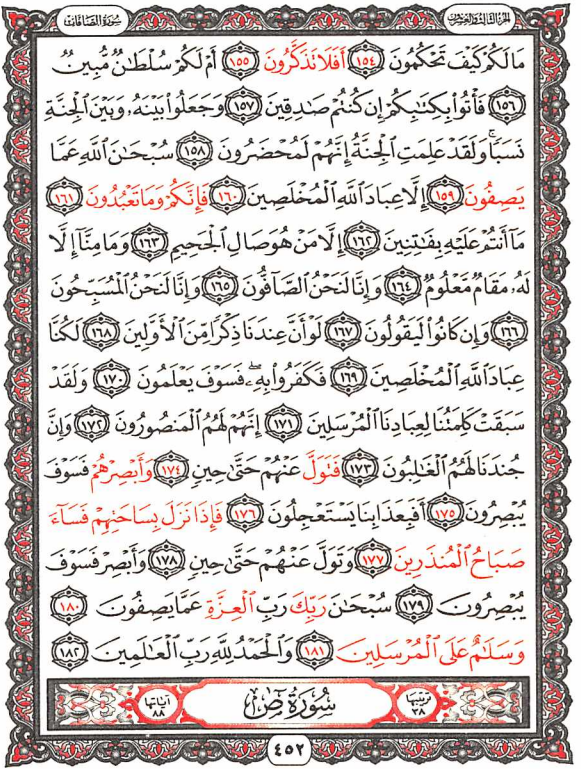 سُورَةُ الصَّافَّاتِ الجزء الثالث والعشرون
مَا لَكُمْ كَيْفَ تَحْكُمُونَ ١٥٤ أَفَلَا تَذَكَّرُونَ ١٥٥ أَمْ لَكُمْ سُلْطَٰنٌ مُّبِينٌ
١٥٦ فَأْتُوا۟ بِكِتَٰبِكُمْ إِن كُنتُمْ صَٰدِقِينَ ١٥٧ وَجَعَلُوا۟ بَيْنَهُۥ وَبَيْنَ ٱلْجِنَّةِ
نَسَبًا ۚ وَلَقَدْ عَلِمَتِ ٱلْجِنَّةُ إِنَّهُمْ لَمُحْضَرُونَ ١٥٨ سُبْحَٰنَ ٱللَّهِ عَمَّا
يَصِفُونَ ١٥٩ إِلَّا عِبَادَ ٱللَّهِ ٱلْمُخْلَصِينَ ١٦٠ فَإِنَّكُمْ وَمَا تَعْبُدُونَ ١٦١
مَآ أَنتُمْ عَلَيْهِ بِفَٰتِنِينَ ١٦٢ إِلَّا مَنْ هُوَ صَالِ ٱلْجَحِيمِ ١٦٣ وَمَا مِنَّآ إِلَّا
لَهُۥ مَقَامٌ مَّعْلُومٌ ١٦٤ وَإِنَّا لَنَحْنُ ٱلصَّآفُّونَ ١٦٥ وَإِنَّا لَنَحْنُ ٱلْمُسَبِّحُونَ
١٦٦ وَإِن كَانُوا۟ لَيَقُولُونَ ١٦٧ لَوْ أَنَّ عِندَنَا ذِكْرًا مِّنَ ٱلْأَوَّلِينَ ١٦٨ لَكُنَّا
عِبَادَ ٱللَّهِ ٱلْمُخْلَصِينَ ١٦٩ فَكَفَرُوا۟ بِهِۦ ۖ فَسَوْفَ يَعْلَمُونَ ١٧٠ وَلَقَدْ
سَبَقَتْ كَلِمَتُنَا لِعِبَادِنَا ٱلْمُرْسَلِينَ ١٧١ إِنَّهُمْ لَهُمُ ٱلْمَنصُورُونَ ١٧٢ وَإِنَّ
جُندَنَا لَهُمُ ٱلْغَٰلِبُونَ ١٧٣ فَتَوَلَّ عَنْهُمْ حَتَّىٰ حِينٍ ١٧٤ وَأَبْصِرْهُمْ فَسَوْفَ
يُبْصِرُونَ ١٧٥ أَفَبِعَذَابِنَا يَسْتَعْجِلُونَ ١٧٦ فَإِذَا نَزَلَ بِسَاحَتِهِمْ فَسَآءَ
صَبَاحُ ٱلْمُنذَرِينَ ١٧٧ وَتَوَلَّ عَنْهُمْ حَتَّىٰ حِينٍ ١٧٨ وَأَبْصِرْ فَسَوْفَ
يُبْصِرُونَ ١٧٩ سُبْحَٰنَ رَبِّكَ رَبِّ ٱلْعِزَّةِ عَمَّا يَصِفُونَ ١٨٠
وَسَلَٰمٌ عَلَى ٱلْمُرْسَلِينَ ١٨١ وَٱلْحَمْدُ لِلَّهِ رَبِّ ٱلْعَٰلَمِينَ ١٨٢
ترتيبها ٣٨ سُورَةُ صٓ آياتها ٨٨
٤٥٢